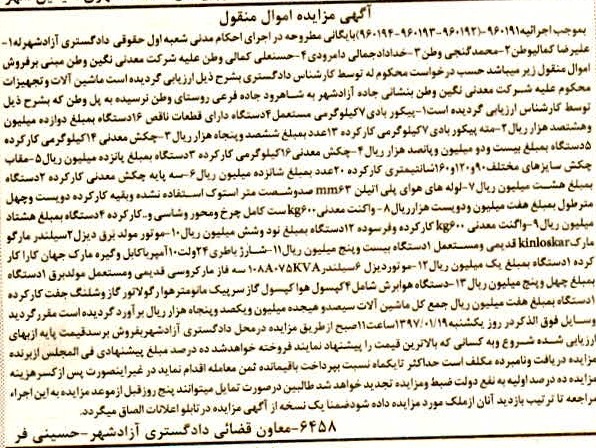 آگهی مزایده اموال منقول
بموجب اجرائیه۹۶۰۱۹۱-(۹۶۰۱۹۲-۹۶۰۱۹۳-۹۶۰۱۹۴)بایگانی مطروحه در اجرای احکام مدنی شعبه اول حقوقی دادگستری آزادشهرله۱-
علیرضا کمالیوطن۲-محمدگنجی وطن۳-خدادادجمالی دامرودی۴-حسنعلی کمالی وطن علیه شرکت معدنی نگین وطن مبنی برفروش
اموال منقول زیر میباشد حسب درخواست محکوم له توسط کارشناس دادگستری بشرح ذیل ارزیابی گردیده است ماشین آلات وتجهیزات
محکوم علیه شرکت معدنی نگین وطن بنشانی جاده آزادشهر به شاهرود جاده فرعی روستای وطن نرسیده به پل وطن که بشرح ذیل
توسط کارشناس ارزیابی گردیده است۱-پیکور بادی۷کیلوگرمی مستعمل۴دستگاه دارای قطعات ناقص ۱۶دستگاه بمبلغ دوازده میلیون
وهشتصد هزار ریال۲-مته پیکور بادی۷کیلوگرمی کارکرده ۱۳عدد بمبلغ ششصد وپنجاه هزار ریال۳-چکش معدنی ۱۴کیلوگرمی کارکرده
۵دستگاه بمبلغ بیست ودو میلیون وپانصد هزار ریال۴-چکش معدنی۱۶کیلوگرمی کارکرده ۳دستگاه بمبلغ پانزده میلیون ریال۵-عقاب
چکش سایزهای مختلف۹۰و۱۲۰و۱۶۰سانتیمتری کارکرده ۲۰عدد بمبلغ شانزده میلیون ریال۶-سه پایه چکش معدنی کارکرده ۲دستگاه
بمبلغ هشت میلیون ریال۷-لوله های هوای پلی اتیلن mm۶۳ صدوشصت متر استوک استفاده نشده وبقیه کارکرده دویست وچهل
مترطول بمبلغ هفت میلیون ودویست هزارریال۸-واگنت معدنی kg۶۰۰ست کامل چرخ ومحور وشاسی و..کارکرده ۴دستگاه بمبلغ هشتاد
میلیون ریال۹-واگنت معدنی kg۶۰۰ کارکرده وفرسوده ۱۲دستگاه بمبلغ نود وشش میلیون ریال۱۰-موتور مولد برق دیزل۲سیلندر مارگو
مارک kinloskar قدیمی ومستعمل ۱دستگاه بیست وپنج میلیون ریال۱۱-شارژ باطری ۲۴ولت۱۰آمپرباکابل وگیره مارک جهان کارا کار
کرده ۱دستگاه بمبلغ یک میلیون ریال۱۲-موتوردیزل ۶سیلندر ۱۰۸A۰۷۵KVA سه فاز مارکروسی قدیمی ومستعمل مولدبرق ۱دستگاه
بمبلغ چهل وپنج میلیون ریال۱۳-دستگاه هوابرش شامل۴کپسول هواکپسول گاز سرپیک مانومترهوا رگولاتور گاز وشلنگ جفت کارکرده
۱دستگاه بمبلغ هفت میلیون ریال جمع کل ماشین آلات سیصدو هیجده میلیون ویکصد وپنجاه هزار ریال برآورد گردیده است مقررگردید
وسایل فوق الذکردر روز یکشنبه۱۳۹۷/۰۱/۱۹ساعت۱۱صبح ازطریق مزایده درمحل دادگستری آزادشهربفروش برسدقیمت پایه ازبهای
ارزیابی شده شروع وبه کسانی که بالاترین قیمت را پیشنهاد نمایند فروخته خواهدشد ده درصد مبلغ پیشنهادی فی المجلس ازبرنده
مزایده دریافت ونامبرده مکلف است حداکثر تایکماه نسبت بپرداخت باقیمانده ثمن معامله اقدام نماید در غیراینصورت پس ازکسرهزینه
مزایده ده درصد اولیه به نفع دولت ضبط ومزایده تجدید خواهد شد طالبین درصورت تمایل میتوانند پنج روزقبل ازموعد مزایده به این اجراء
مراجعه تا ترتیب بازدید آنان ازملک مورد مزایده داده شودضمنا یک نسخه از آگهی مزایده در تابلو اعلانات الصاق میگردد.
۶۴۵۸-معاون قضائی دادگستری آزادشهر-حسینی فر